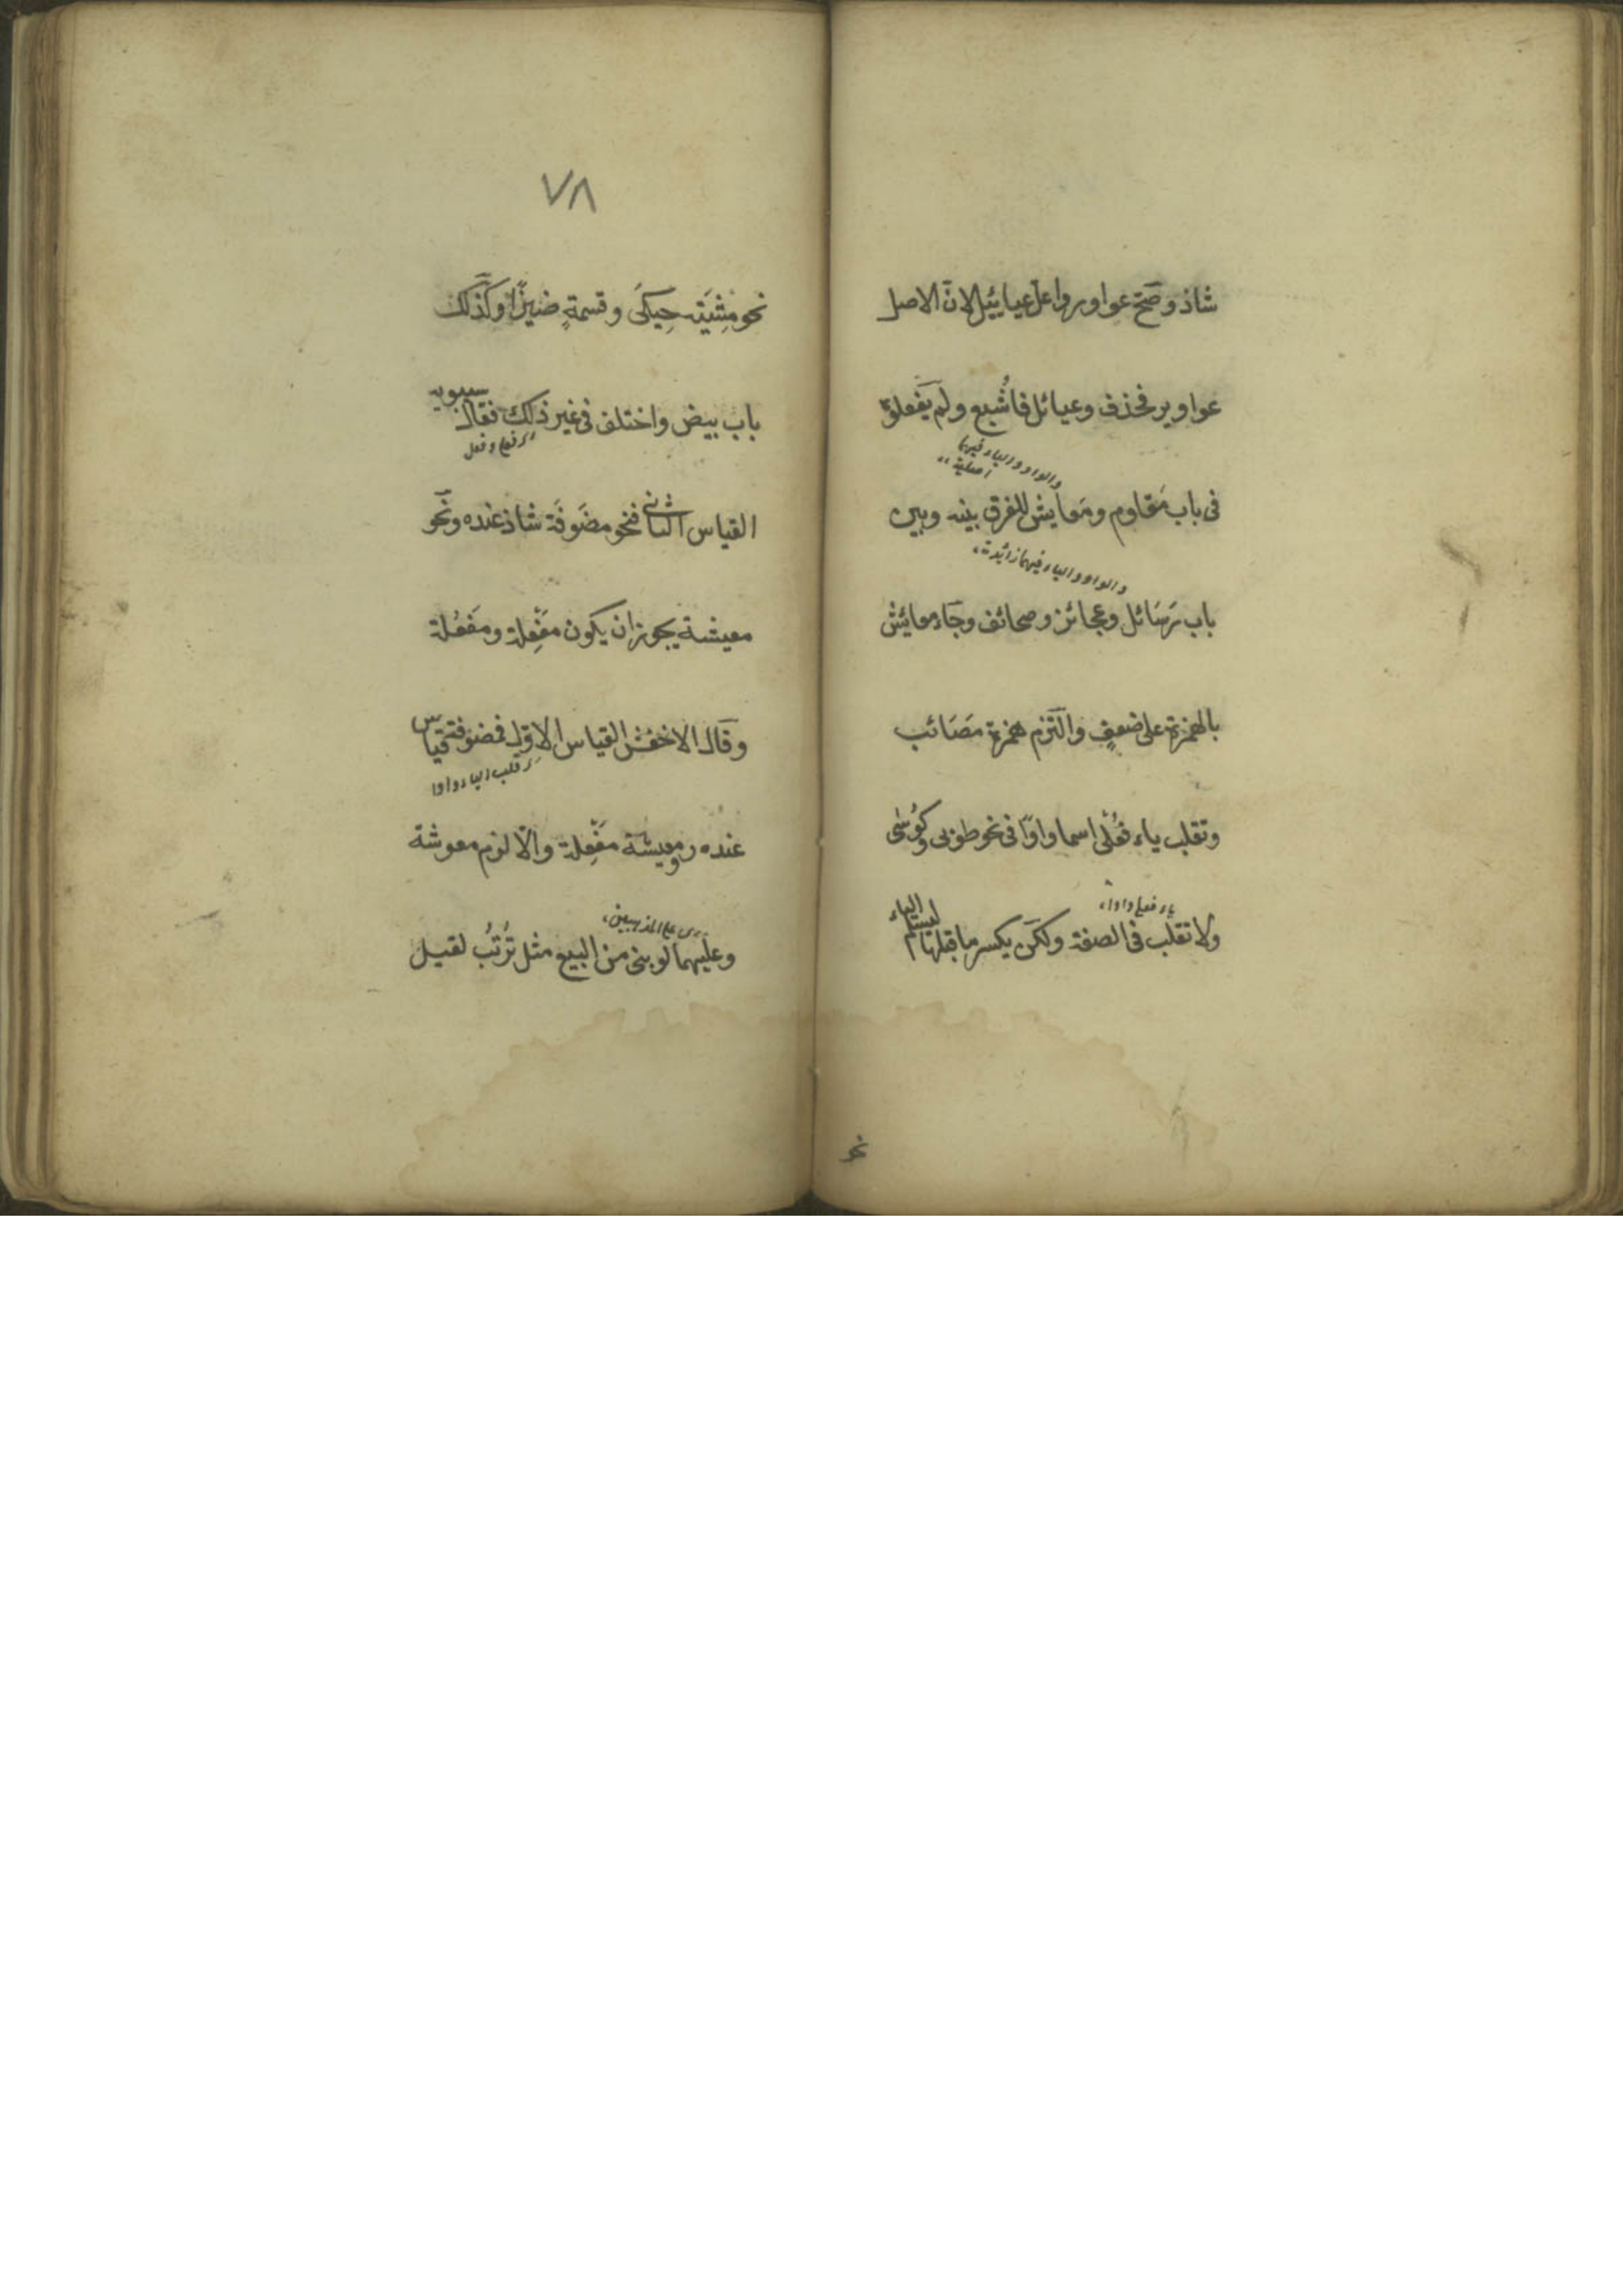 شاذ وصَحَّ عواور واعلّ عيائيل لانّ الاصل
عواوير فحذف وعيائل فاشُبع ولَم يَفعلوه
والواو والياء فيهما
اصلية
فى باب مَقاوم ومَعايش للفرق بينه وبين
والواو والياء فيهما زائدة
باب رَسَائل وعجائز وصحائف وجَاء معائش
بالهمزة على ضعفٍ والتزم همزة مَصَائب
وتقلب ياء فُعْلى اسما واوًا فى نحو طوبى وكُوسٰى
ياء فعلى واوا
ولا تقلب فى الصفة ولكن يكسر ما قبلها لتسلم الياء
نحو
٧٨
نحو مِشيَة حِيكَى وقسمةٍ ضيزًا وكَذلك
باب بيض واختلف فى غير ذلك فقال سيبويه
فعلى وفعل
القياس الثانى فنحو مضَوفَة شاذ عنده ونَحو
معيشة يجوز ان يكون مَفْعِلة ومَفعُلة
وقال الاخفش القياس الاوّل فمضوفة قياس
قلب الياء واوا
عنده ومعيشة مَفْعِلة والّا لزم معوشة
على المذهبين
وعليهما لو بنى من البيع مثل تُرْتُب لقيل